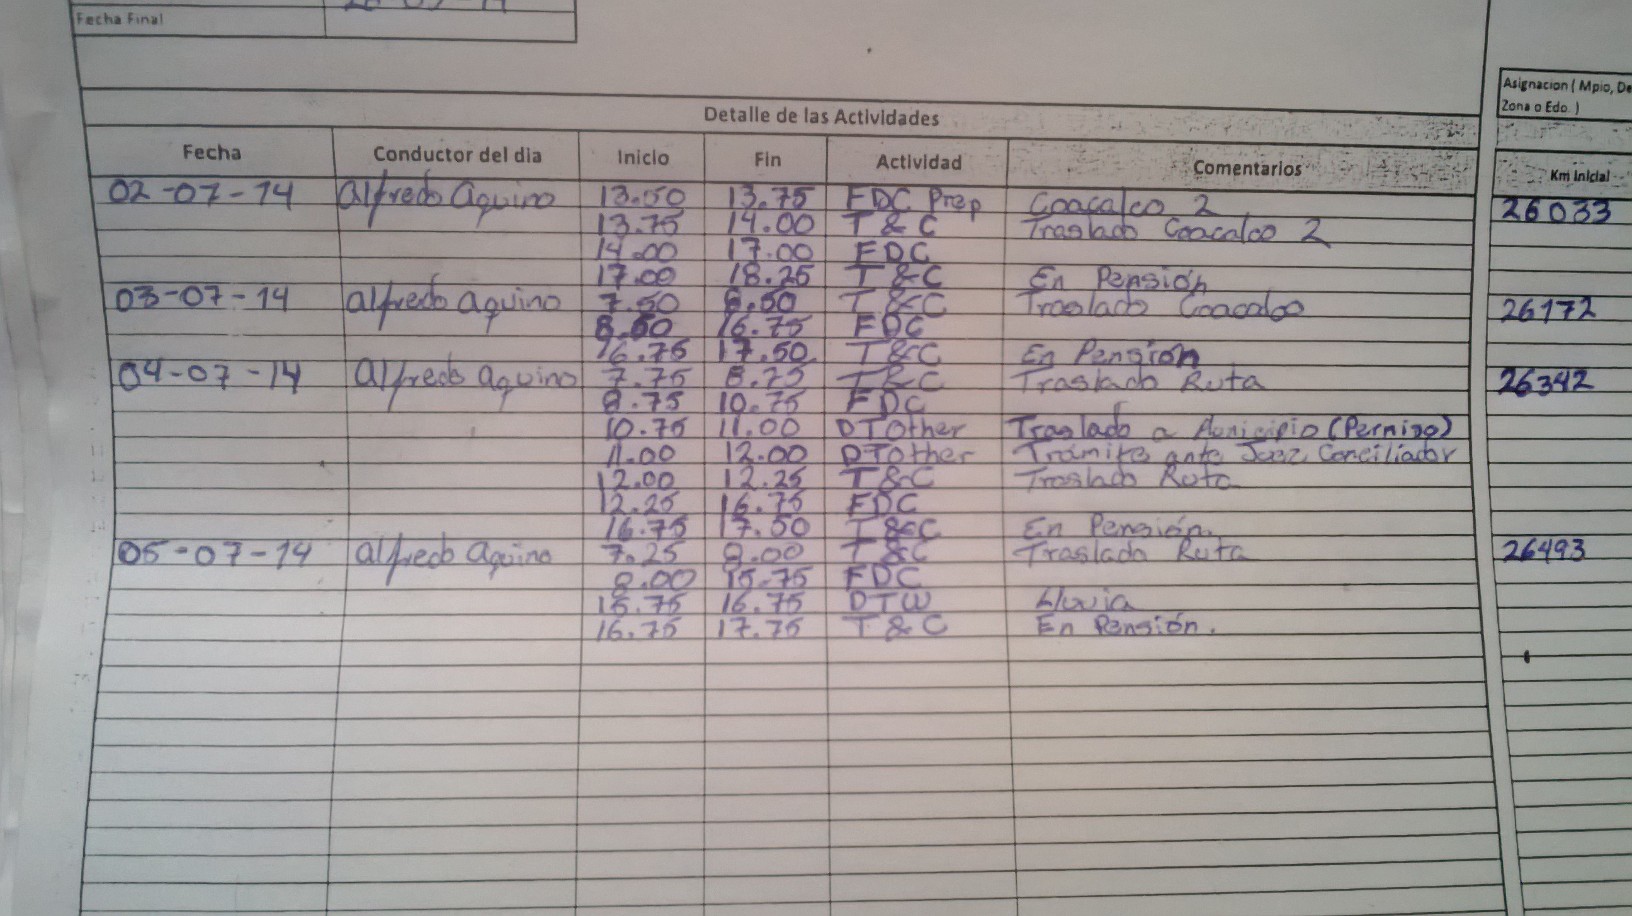 Fecha Final
Asignacion ( Mpio, De
Zona o Edo. )
Detalle de las Actividades
Fecha Conductor del dia Inicio Fin Actividad Comentarios Km Inicial
02-07-14 Alfredo Aquino 13.50 13.75 FDC Prep Coacalco 2 26033
13.75 14.00 T & C Traslado Coacalco 2
14.00 17.00 FDC
17.00 18.25 T & C En Pensión
03-07-14 Alfredo Aquino 7.50 8.50 T & C Traslado Coacalco 26172
8.50 16.75 FDC
16.75 17.50 T & C En Pensión
04-07-14 Alfredo Aquino 7.75 8.75 T & C Traslado Ruta 26342
8.75 10.75 FDC
10.75 11.00 DTOther Traslado a Municipio (Permiso)
11.00 12.00 DTOther Trámite ante Juez Conciliador
12.00 12.25 T & C Traslado Ruta
12.25 16.75 FDC
16.75 17.50 T & C En Pensión.
05-07-14 Alfredo Aquino 7.25 8.00 T & C Traslado Ruta 26493
8.00 15.75 FDC
15.75 16.75 DTW Lluvia
16.75 17.75 T & C En Pensión.